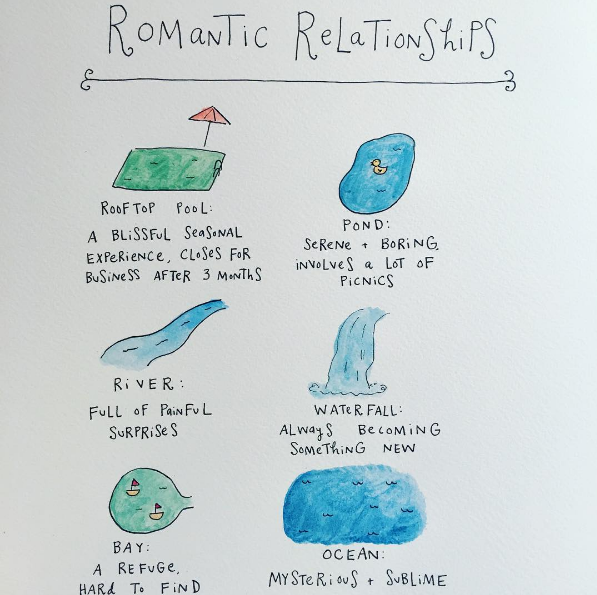 Romantic Relationships
Rooftop Pool:
A Blissful Seasonal
Experience, Closes for
Business after 3 months
Pond:
Serene + Boring,
involves a lot of
picnics
River:
Full of painful
surprises
Waterfall:
Always becoming
something new
Bay:
A refuge,
hard to find
Ocean:
Mysterious + sublime